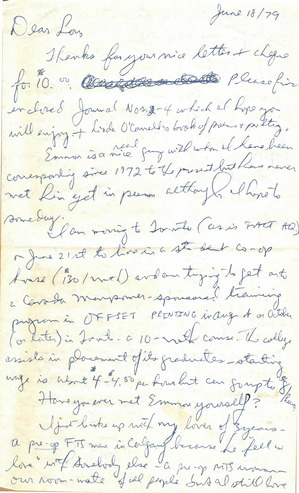 June 18/79
Dear Lou,
Thanks for your nice letter + cheque
for $10.00. Please find
enclosed Journal Nos. 2-4 which I hope you
will enjoy + Linda O'Connell's book of poems,
Emmon is a real nice guy with whom I have been
corresponding since 1972 to the present but have never
met him yet in person although I hope to
someday.
I am moving to Toronto (as is FACT HQ)
on June 21st to live in a student co-op
house ($130/mo.) and am trying to get onto
a Canada Manpower-sponsored training
program in OFFSET PRINTING in August or October
(or later) in Toronto - a 10-mth course. The college
assists in placement of its graduates - starting
wage is about $4-4.50 per hour but can go up to
Have you ever met Emmon yourself?
I just broke up with my lover of 3 years -
a pre-op FTS man in Calgary because he fell in
love with somebody else - a pre-op MTS woman
our room-mate of all people but I still love